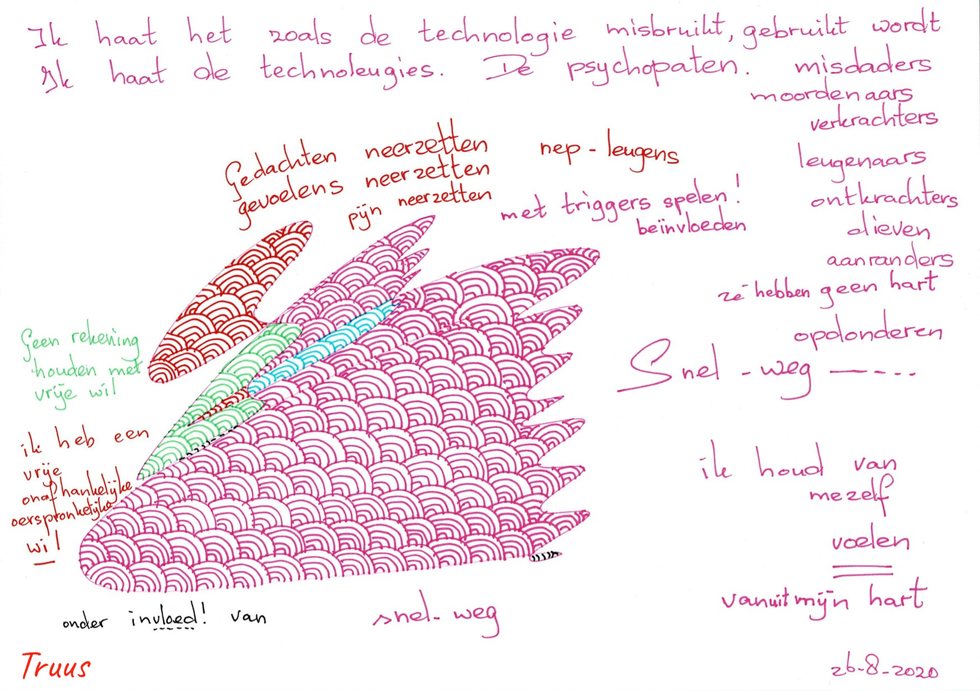 Ik haat het zoals de technologie misbruikt, gebruikt wordt
Ik haat de technoleugies. De psychopaten. misdaders
moordenaars
verkrachters
leugenaars
ontkrachters
dieven
aanranders
ze hebben geen hart
opdonderen
Snel - weg ----
Gedachten neerzetten
gevoelens neerzetten
pijn neerzetten
nep - leugens
met triggers spelen!
beïnvloeden
Geen rekening
houden met
vrije wil
ik heb een
vrije
onafhankelijke
oerspronkelijke
wil
ik houd van
mezelf
voelen
vanuit mijn hart
onder invloed! van
snel - weg
Truus
26-8-2020